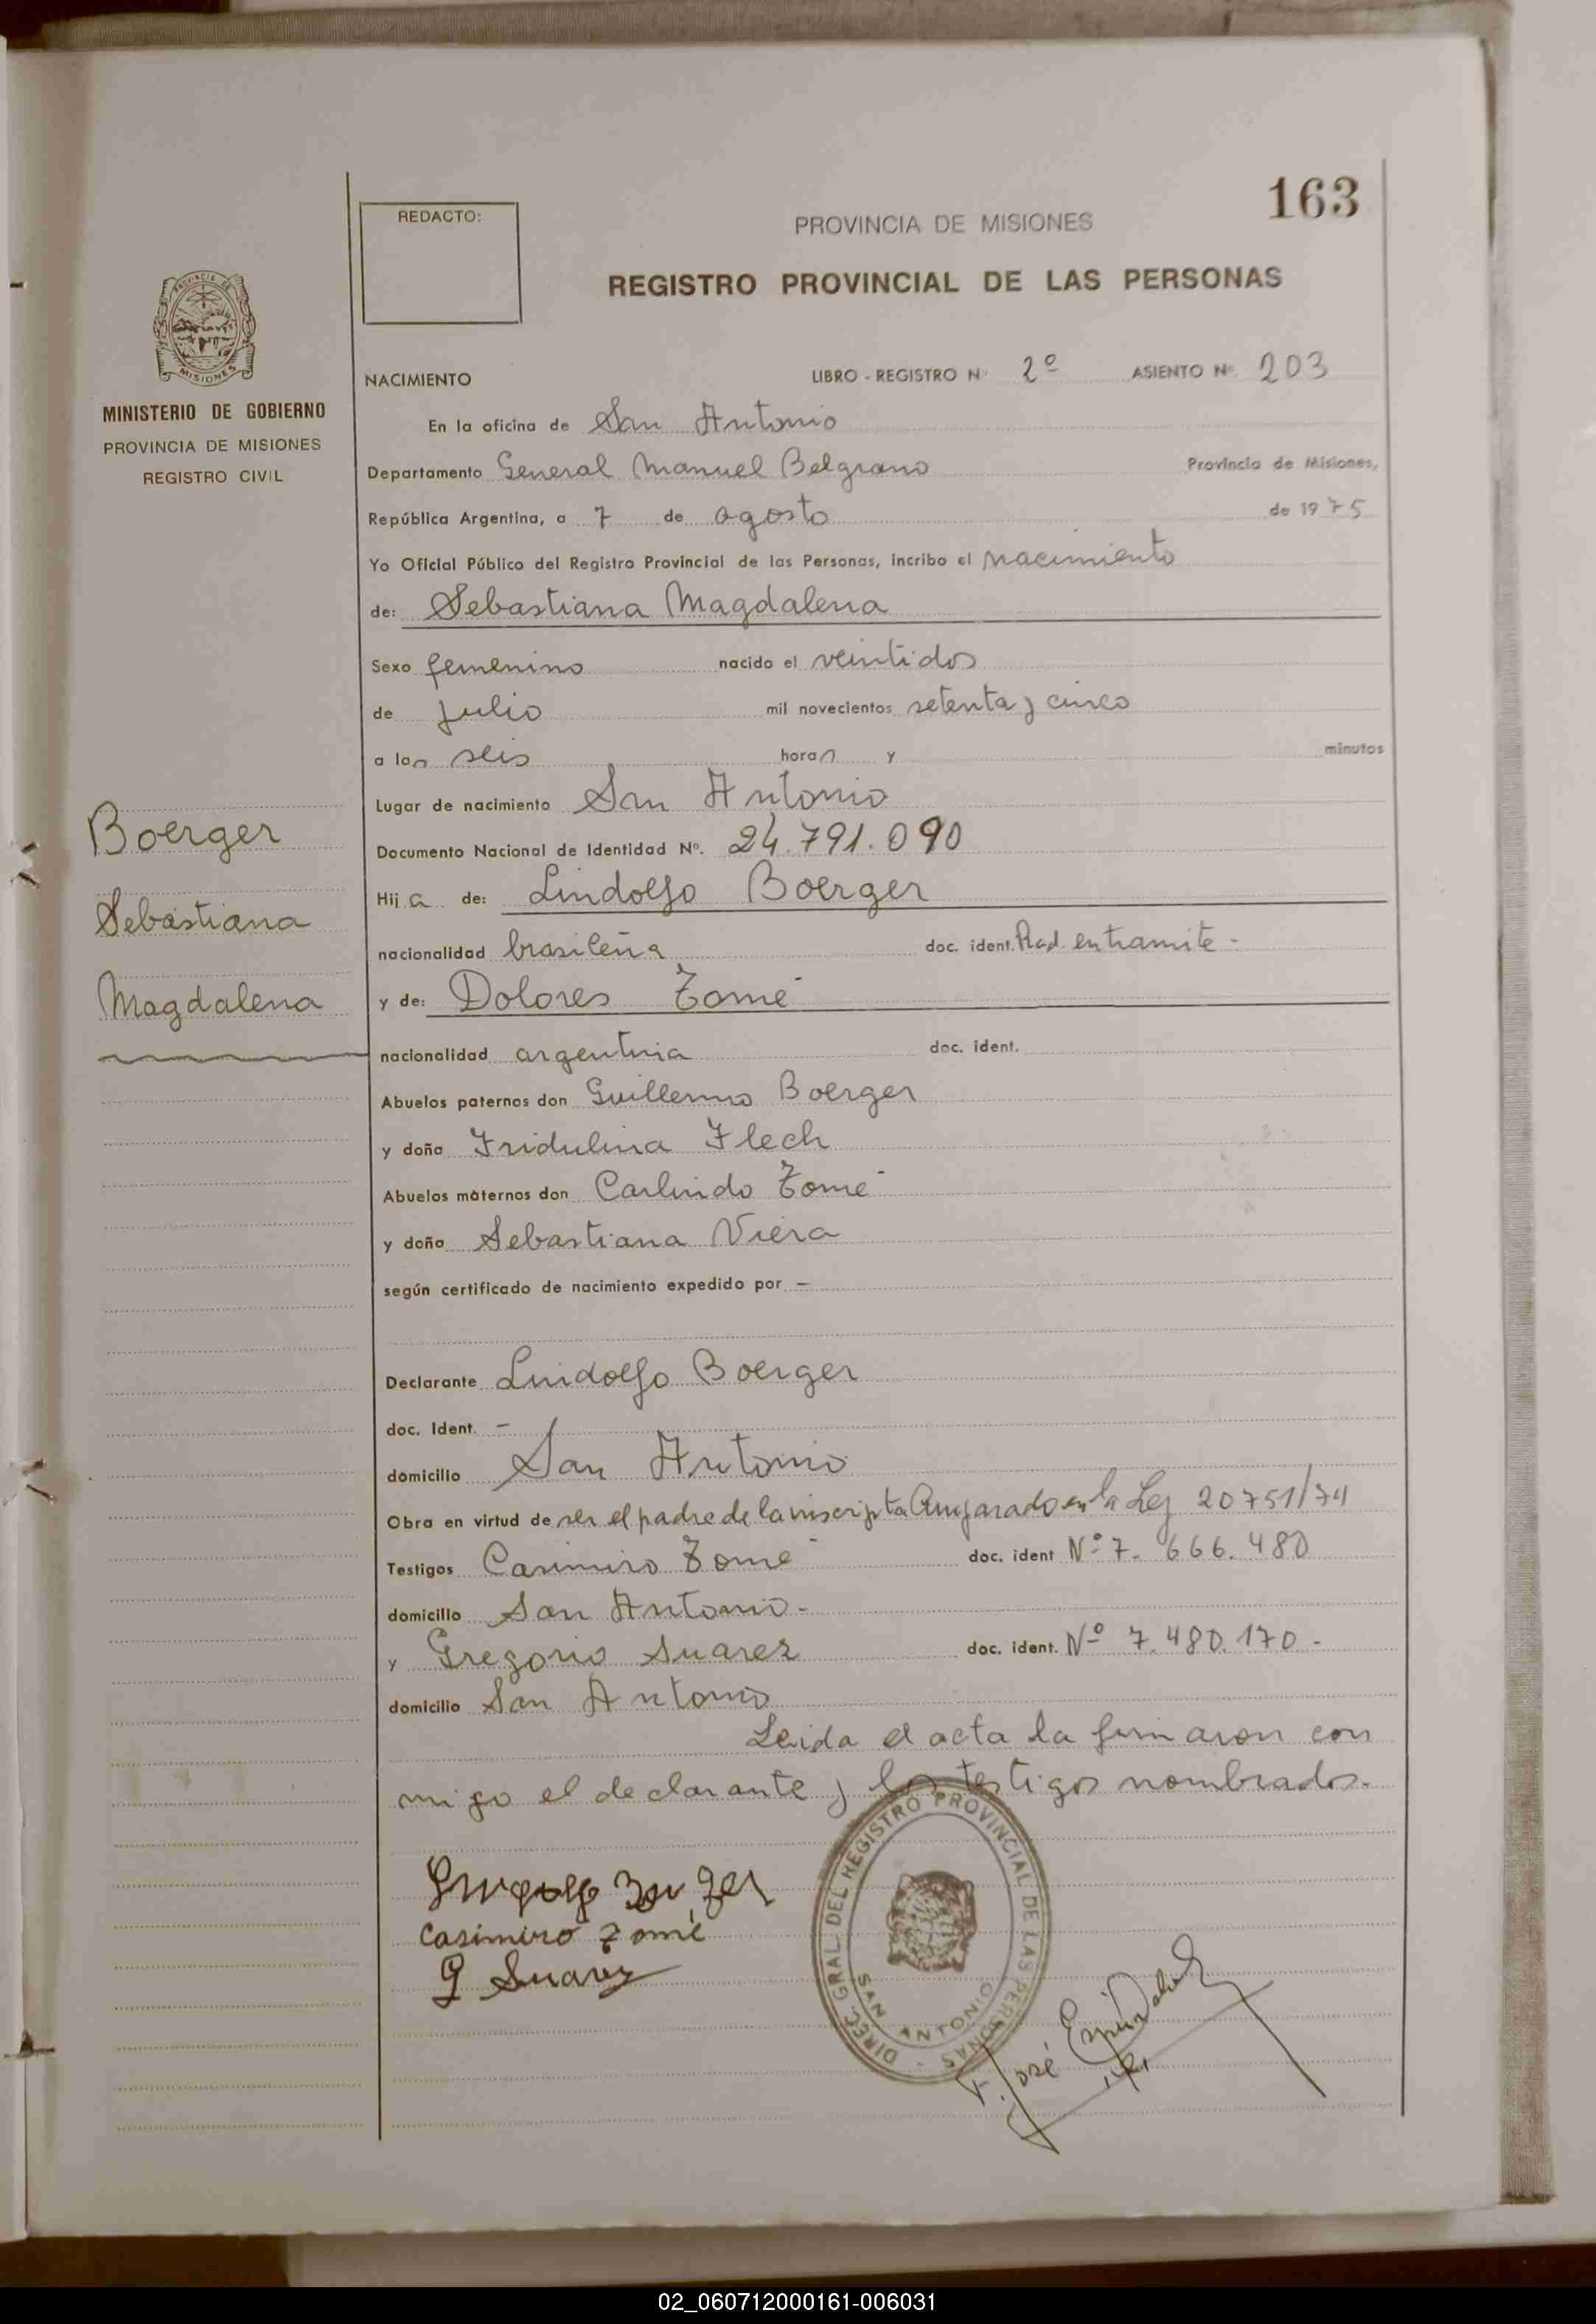 163
REDACTO:
PROVINCIA DE MISIONES
REGISTRO PROVINCIAL DE LAS PERSONAS
PROVINCIA DE MISIONES
MINISTERIO DE GOBIERNO
PROVINCIA DE MISIONES
REGISTRO CIVIL
NACIMIENTO LIBRO - REGISTRO Nº 2º ASIENTO Nº 203
En la oficina de San Antonio
Departamento General Manuel Belgrano Provincia de Misiones,
República Argentina, a 7 de agosto de 1975
Yo Oficial Público del Registro Provincial de las Personas, incribo el nacimiento
de: Sebastiana Magdalena
Sexo femenino nacido el veintidos
de julio mil novecientos setenta y cinco
a las seis horas y minutos
Lugar de nacimiento San Antonio
Documento Nacional de Identidad Nº. 24.791.090
Hija de: Lindolfo Boerger
nacionalidad brasileña doc. ident. Rad. en tramite -
y de: Dolores Zomé
nacionalidad argentina doc. ident.
Abuelos paternos don Guillermo Boerger
y doña Fridulina Flech
Abuelos maternos don Carlindo Zomé
y doña Sebastiana Viera
según certificado de nacimiento expedido por -
Declarante Lindolfo Boerger
doc. Ident. -
domicilio San Antonio
Obra en virtud de ser el padre de la inscripta Amparado en la Ley 20751/74
Testigos Casimiro Zomé doc. ident Nº 7.666.480
domicilio San Antonio.-
y Gregorio Suarez doc. ident. Nº 7.480.170.-
domicilio San Antonio
Leida el acta la firmaron con
migo el declarante y los testigos nombrados.-
Boerger
Sebastiana
Magdalena
Casimiro Zomé
G Suarez
DIREC. GRAL. DEL REGISTRO PROVINCIAL DE LAS PERSONAS
SAN ANTONIO
José
02_060712000161-006031